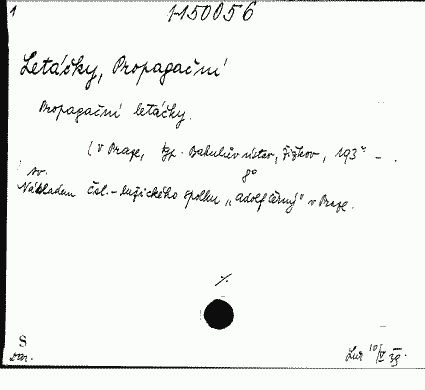 1
1-150056
Letáčky, Propagační
Propagační letáčky.
(v Praze, Bakulův ústav, Žižkov, 193* - .
sv. 8°
Nákladem čsl.-lužického spolku „Adolf Černý" v Praze.
./.
S